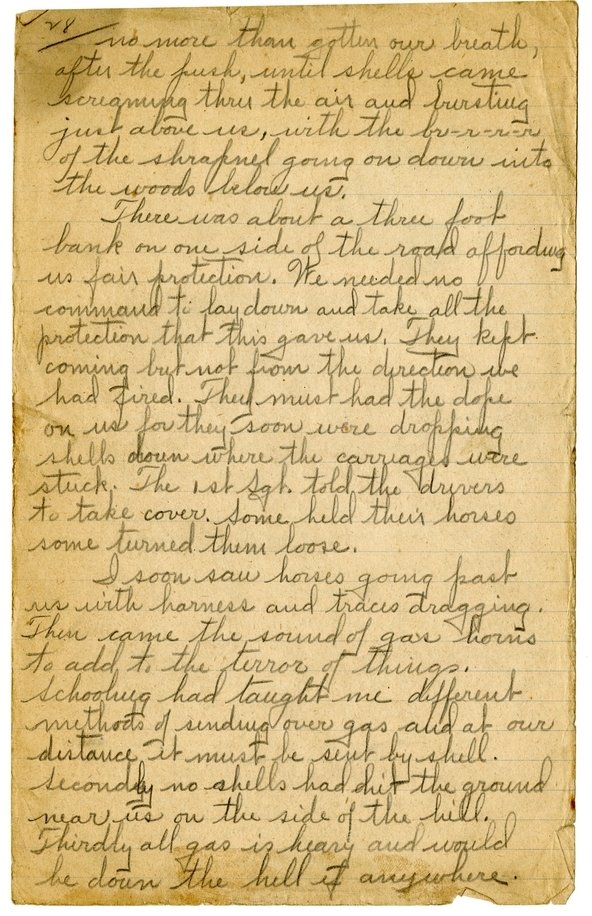 28
no more than gotten our breath,
after the push, until shells came
screaming thru the air and bursting
just above us, with the br-r-r-r
of the shrapnel going on down into
the woods below us.
There was about a three foot
bank on one side of the road affording
us fair protection. We needed no
command to lay down and take all the
protection that this gave us. They kept
coming but not from the direction we
had fired. They must had the dope
on us for they soon were dropping
shells down where the carriages were
stuck. The 1st Sgt. told the drivers
to take cover. Some held their horses
some turned them loose.
I soon saw horses going past
us with harness and traces dragging.
Then came the sound of gas horns
to add to the terror of things.
Schooling had taught me different
methods of sending over gas and at our
distance it must be sent by shell.
Secondly no shells had hit the ground
near us on the side of the hill.
Thirdly all gas is heavy and would
be down the hill if anywhere.